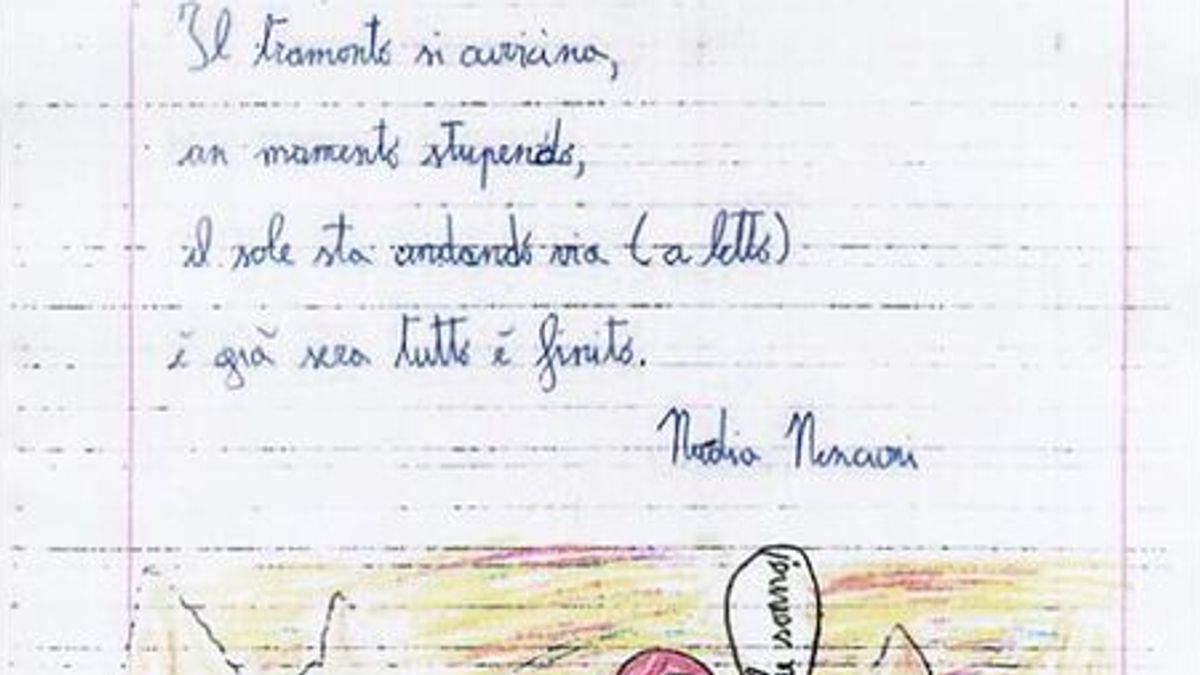 Il tramonto si avvicina,
un momento stupendo,
il sole sta andando via (a letto)
è già sera tutto è finito.
Nadia Nencioni
sonnò